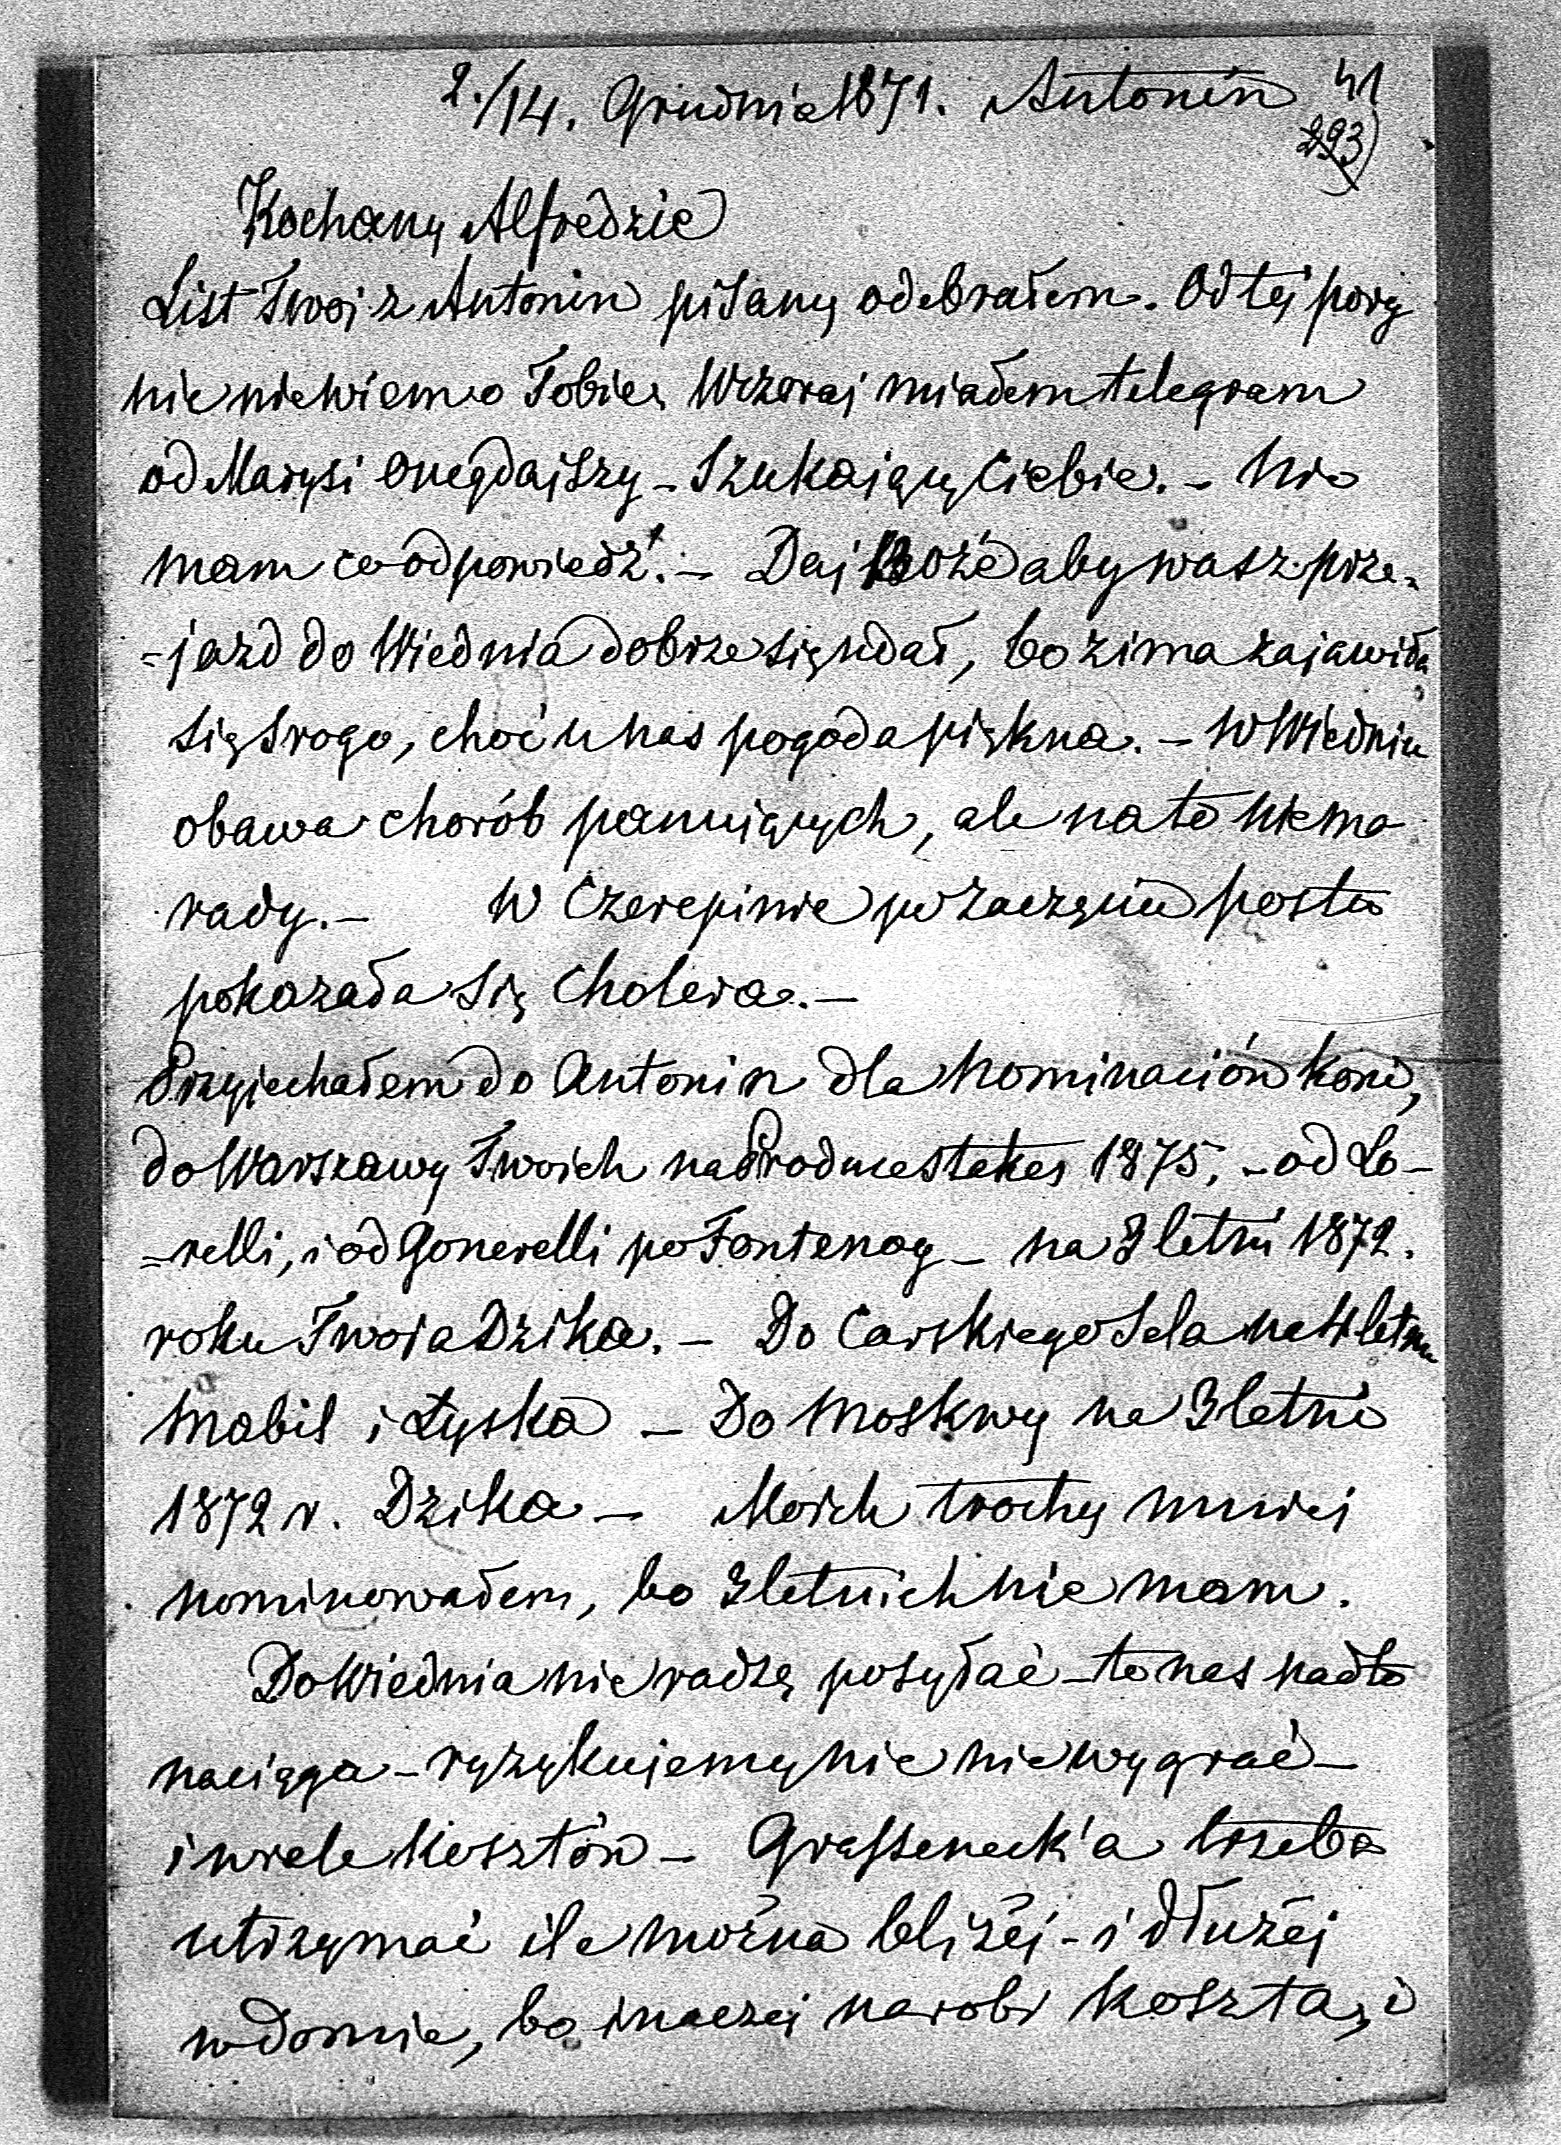 2./14. Grudnia 1871. Antonin 41
293)
Kochany Alfredzie
List Twoj z Antonin pisany odebrałem. Od tej pory
nic niewiem o Tobie, Wczoraj miałem telegram
od Marysi onegdajszy – szukający Ciebie. – Nie
mam co odpowiedź. – Daj Boże aby wasz prze=
=jazd do Wiednia dobrze się udał, bo zima zajawiła
się srogo, choć u nas pogoda piękna. – W Wiedniu
obawa chorób panujących, ale na to niema
rady. – W Czerepinie po zaczęciu postu
pokazała się Cholera. –
Przyjechałem do Antonin dla nominación koni,
do Warszawy Twoich na Produce Stakes 1875, – od Lo–
=relli, i od Gonerelli po Fontenoy – na 3 letni 1872.
roku Twoia Dzika. – Do Carskiego Sela na 4 letni
Mabil i Łyska – Do Moskwy na 3 letni
1872 r. Dzika – Moich trochę mniej
nominowałem, bo 3 letnich nie mam.
Do Wiednia nie radzę posyłać – to nas nadto
naciąga – ryzykujemy nic nie wygrać –
i wiele kosztów – Grefseneck'a trzeba
utrzymać ile można bliżéj – i dłużéj
w domie, bo inaczej narobi koszta, i